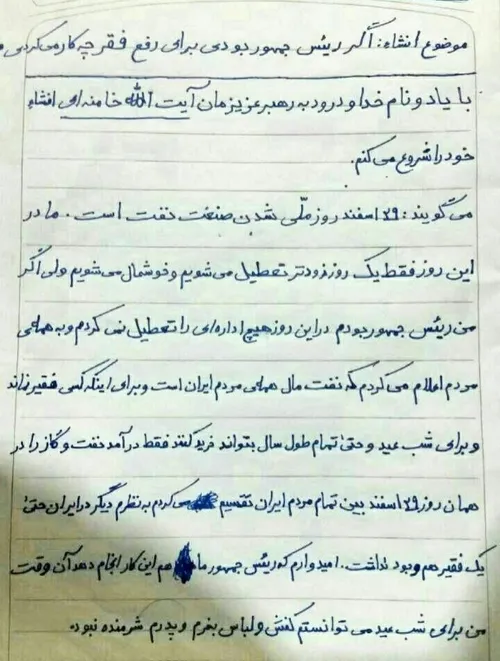 موضوع انشاء: اگر رئیس جمهور بودی برای رفع فقر چه کار می‌کردی
با یاد و نام خدا و درود به رهبر عزیزمان آیت الله خامنه ای انشاء
خود را شروع می کنم.
می گویند: ۲۹ اسفند روز ملّی شدن صنعت نفت است. ما در
این روز فقط یک روز زودتر تعطیل می شویم و خوشحال می شویم ولی اگر
من رئیس جمهور بودم در این روز هیچ اداره ای را تعطیل نمی کردم و به همه‌ی
مردم اعلام می کردم که نفت مال همه‌ی مردم ایران است و برای اینکه کسی فقیر نماند
و برای شب عید و حتیٰ تمام طول سال بتواند خرید کند فقط درآمد نفت و گاز را در
همان روز ۲۹ اسفند بین تمام مردم ایران تقسیم می کردم به نظرم دیگر در ایران حتیٰ
یک فقیر هم وجود نداشت. امیدوارم که رئیس جمهور ما هم این کار انجام دهد آن وقت
من برای شب عید می توانستم کفش و لباس بخرم و پدرم شرمنده نبود.